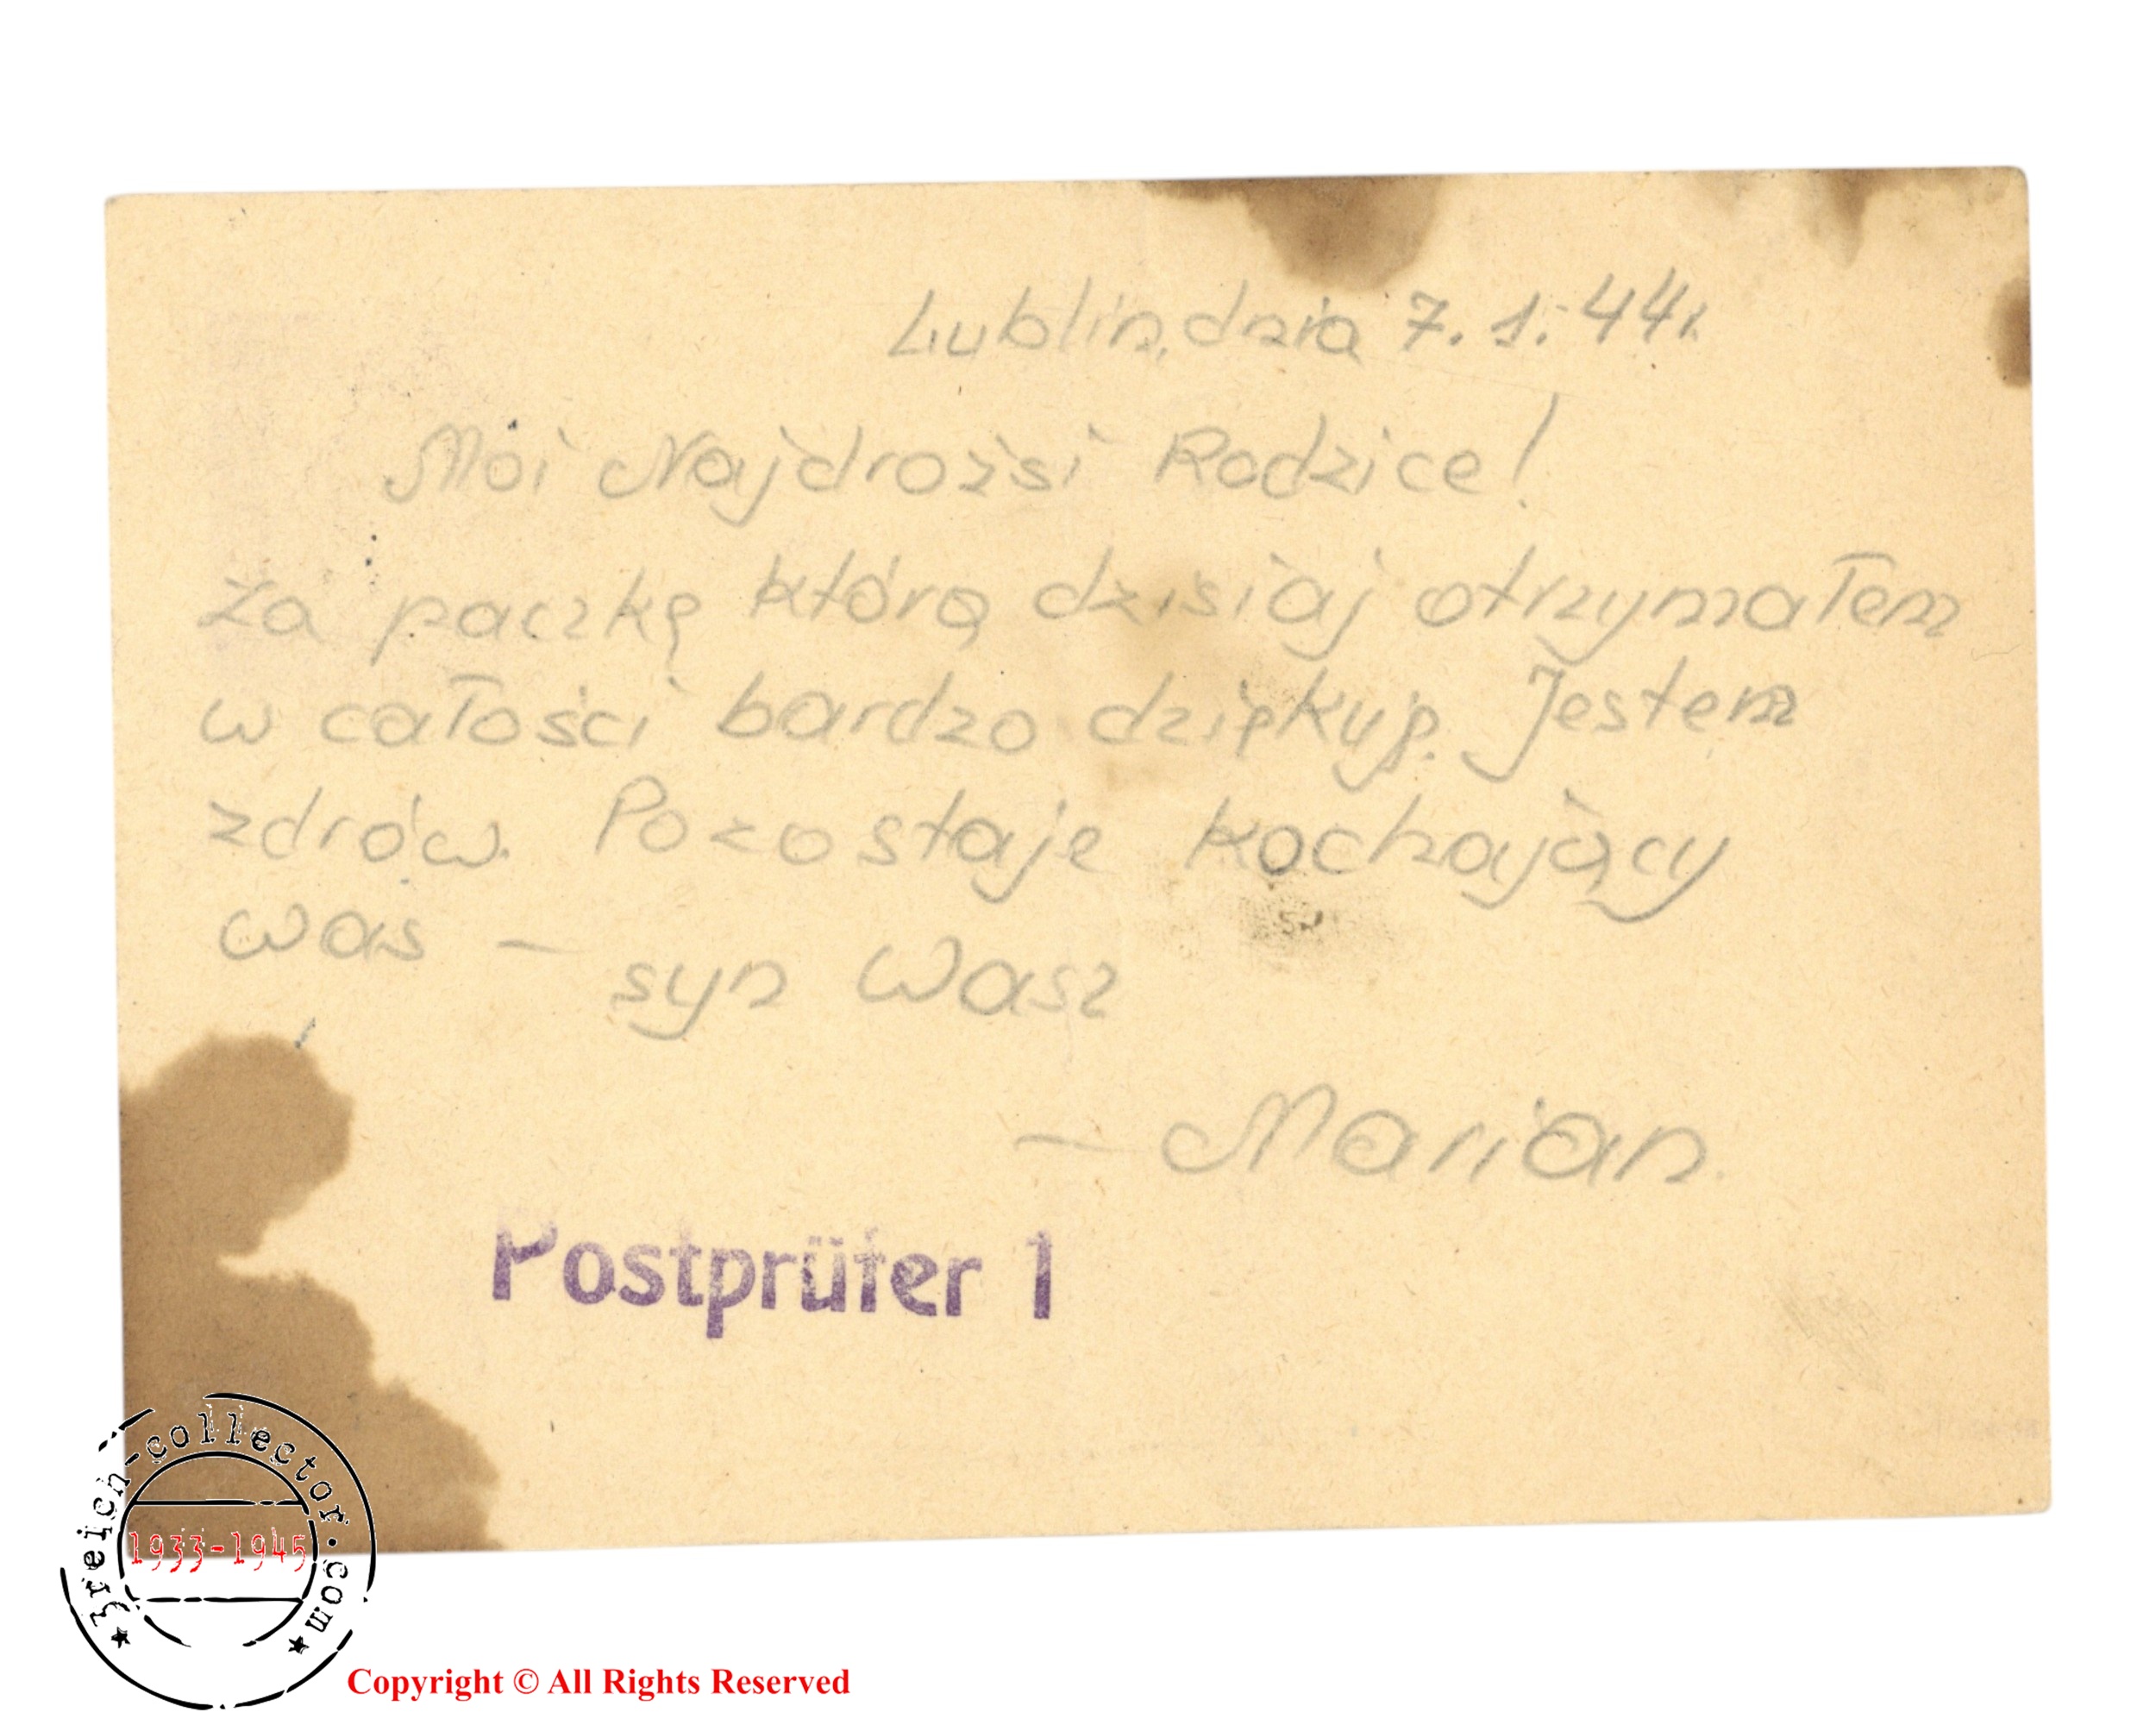 Lublin, dnia 7. 1. 44r.
Moi Najdrożsi Rodzice!
Za paczkę którą dzisiaj otrzymałem
w całości bardzo dziękuję. Jestem
zdrów. Pozostaje kochający
Was – syn Wasz
– Marian.
Postprüfer 1
3reich-collector.com
1933-1945
Copyright © All Rights Reserved